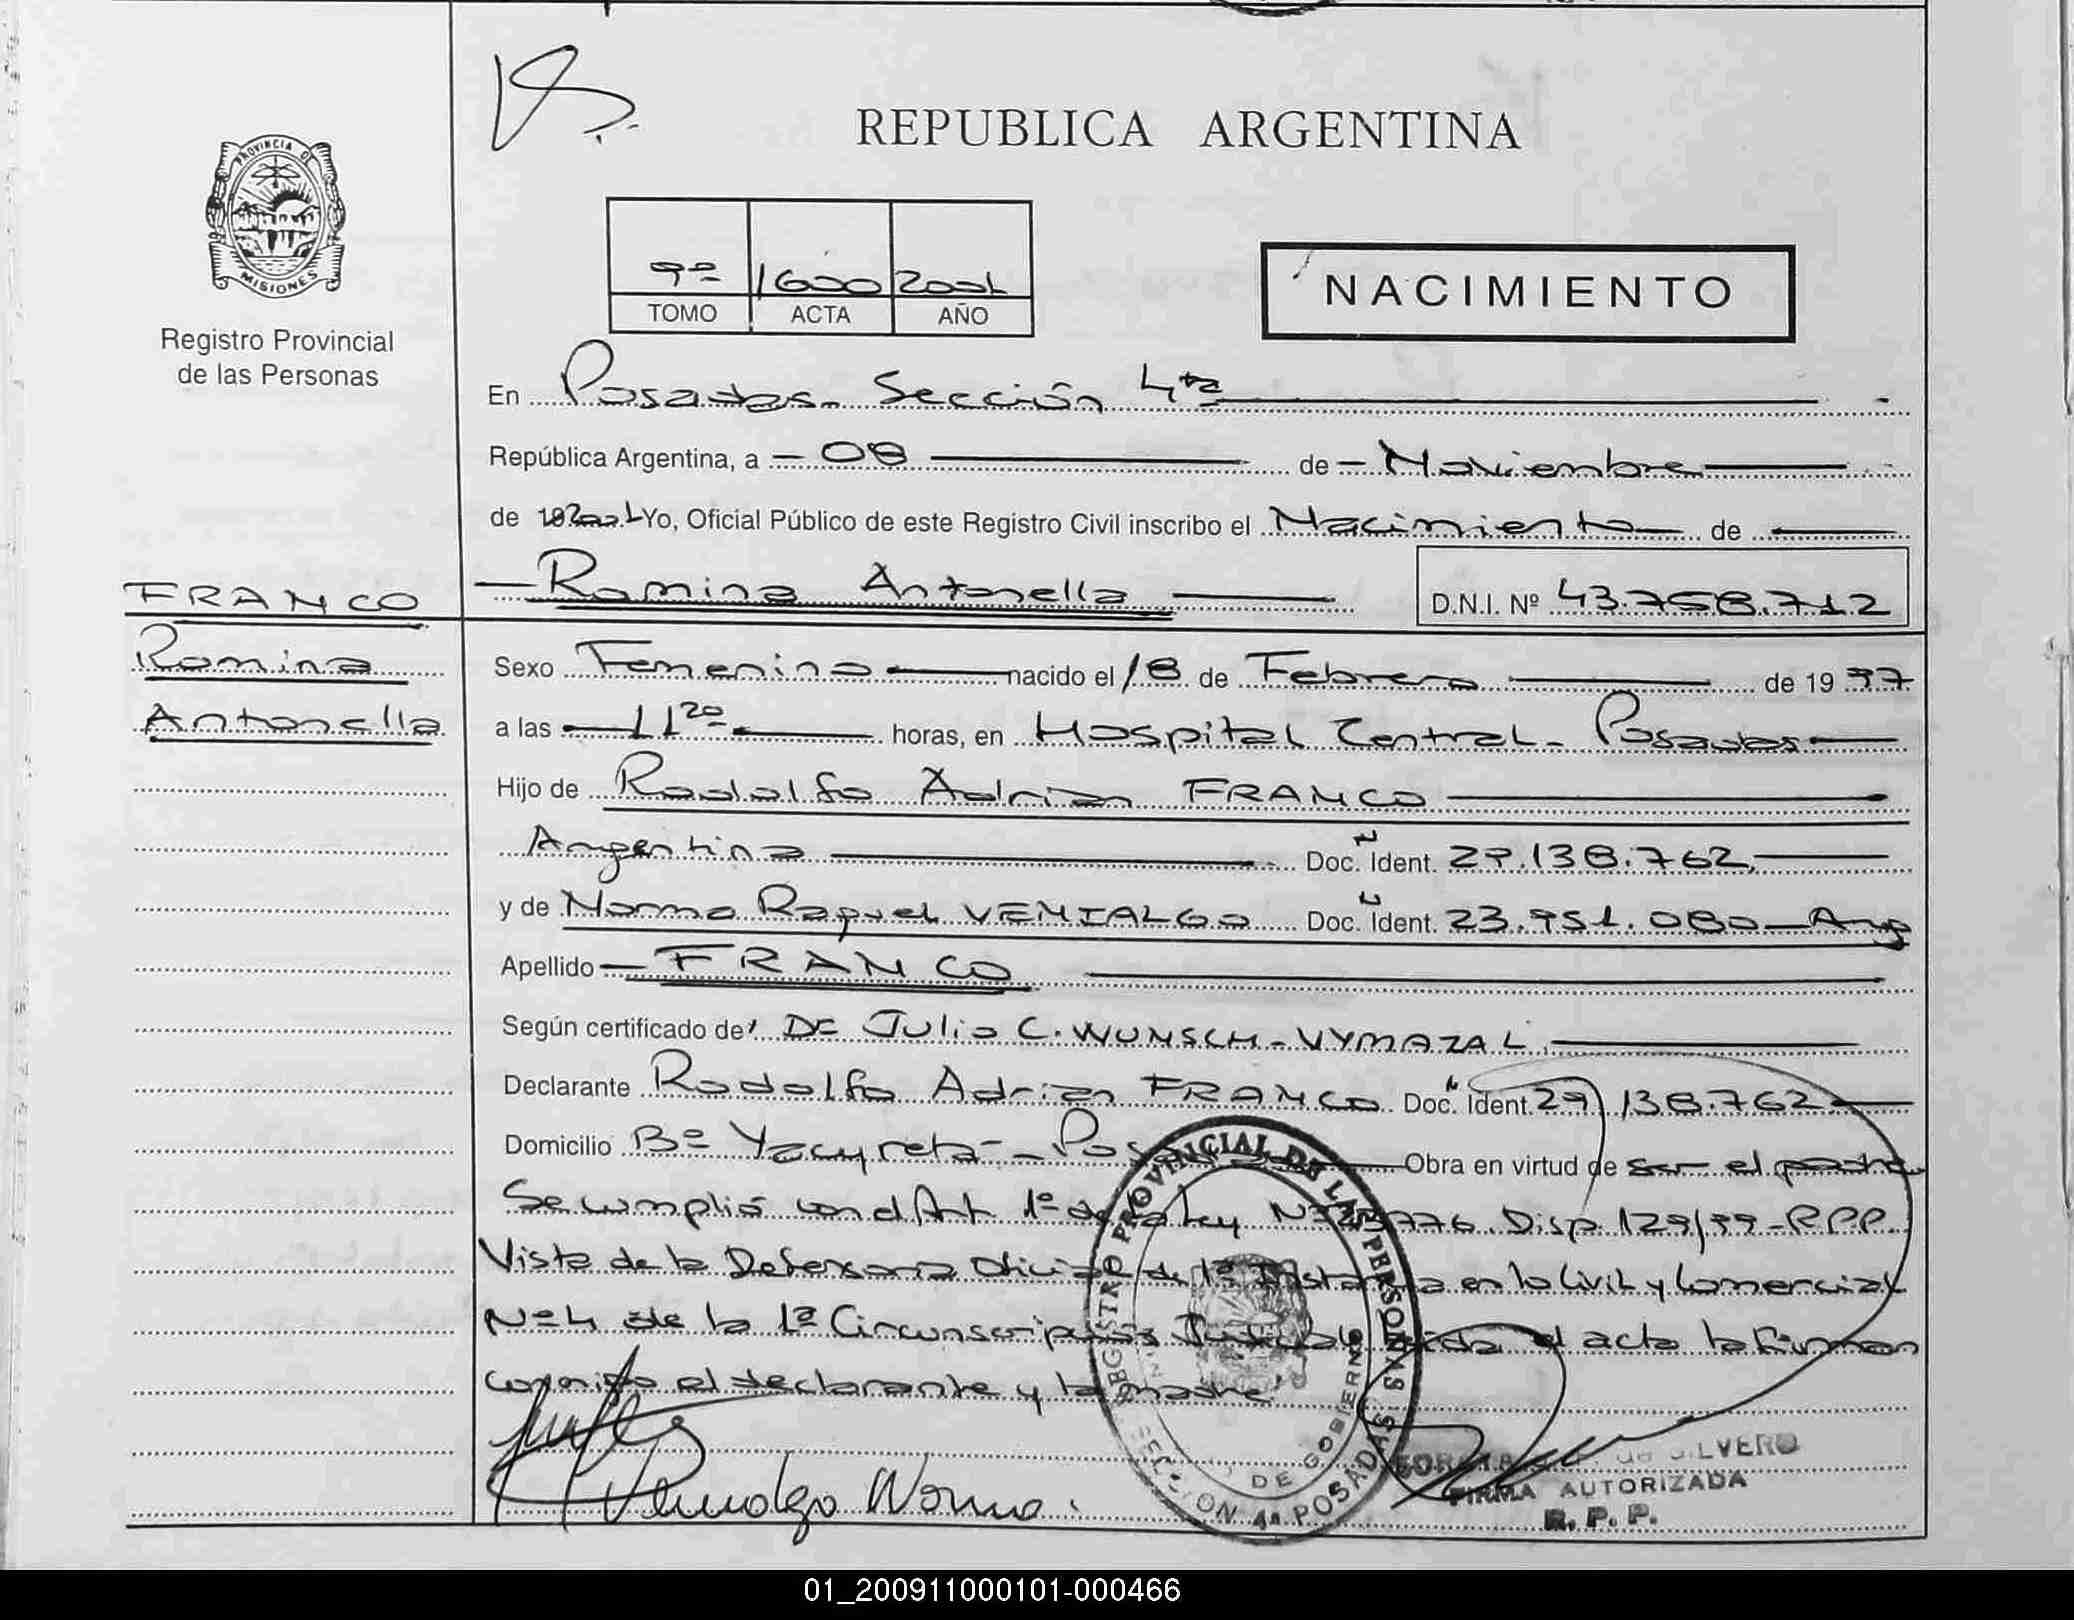 REPUBLICA ARGENTINA
PROVINCIA DE MISIONES
Registro Provincial
de las Personas
9º 1600 2001
TOMO ACTA AÑO
NACIMIENTO
En Posadas - Sección 4ta
República Argentina, a 08 de Noviembre
de 19 2001 Yo, Oficial Público de este Registro Civil inscribo el Nacimiento de
FRANCO
Romina
Antonella
Romina Antonella D.N.I. Nº 43.758.712
Sexo Femenino nacido el 18 de Febrero de 19 97
a las 11 20 horas, en Hospital Central - Posadas
Hijo de Rodolfo Adrian FRANCO
Argentino Doc. Ident. 29.138.762
y de Norma Raquel VENIALGO Doc. Ident. 23.951.080 - Arg
Apellido FRANCO
Según certificado de Dr Julio C. WUNSCH - VYMAZAL
Declarante Rodolfo Adrian FRANCO Doc. Ident. 29.138.762
Domicilio Bº Yacyreta - Posadas Obra en virtud de ser el padre
Se cumplió con el Art 1º de la Ley Nº 776 Disp 129/99 - RPP.
Vista de la Defensoria Oficial de 1ª Instancia en lo Civil y Comercial
Nº 4 de la 1ª Circunscripción Judicial Leida el acta la firman
conmigo el declarante y la madre
REGISTRO PROVINCIAL DE LAS PERSONAS
DE GOBIERNO
SECCION 4ª POSADAS
Venialgo Norma.
SILVERO
FIRMA AUTORIZADA
R. P. P.
01_200911000101-000466